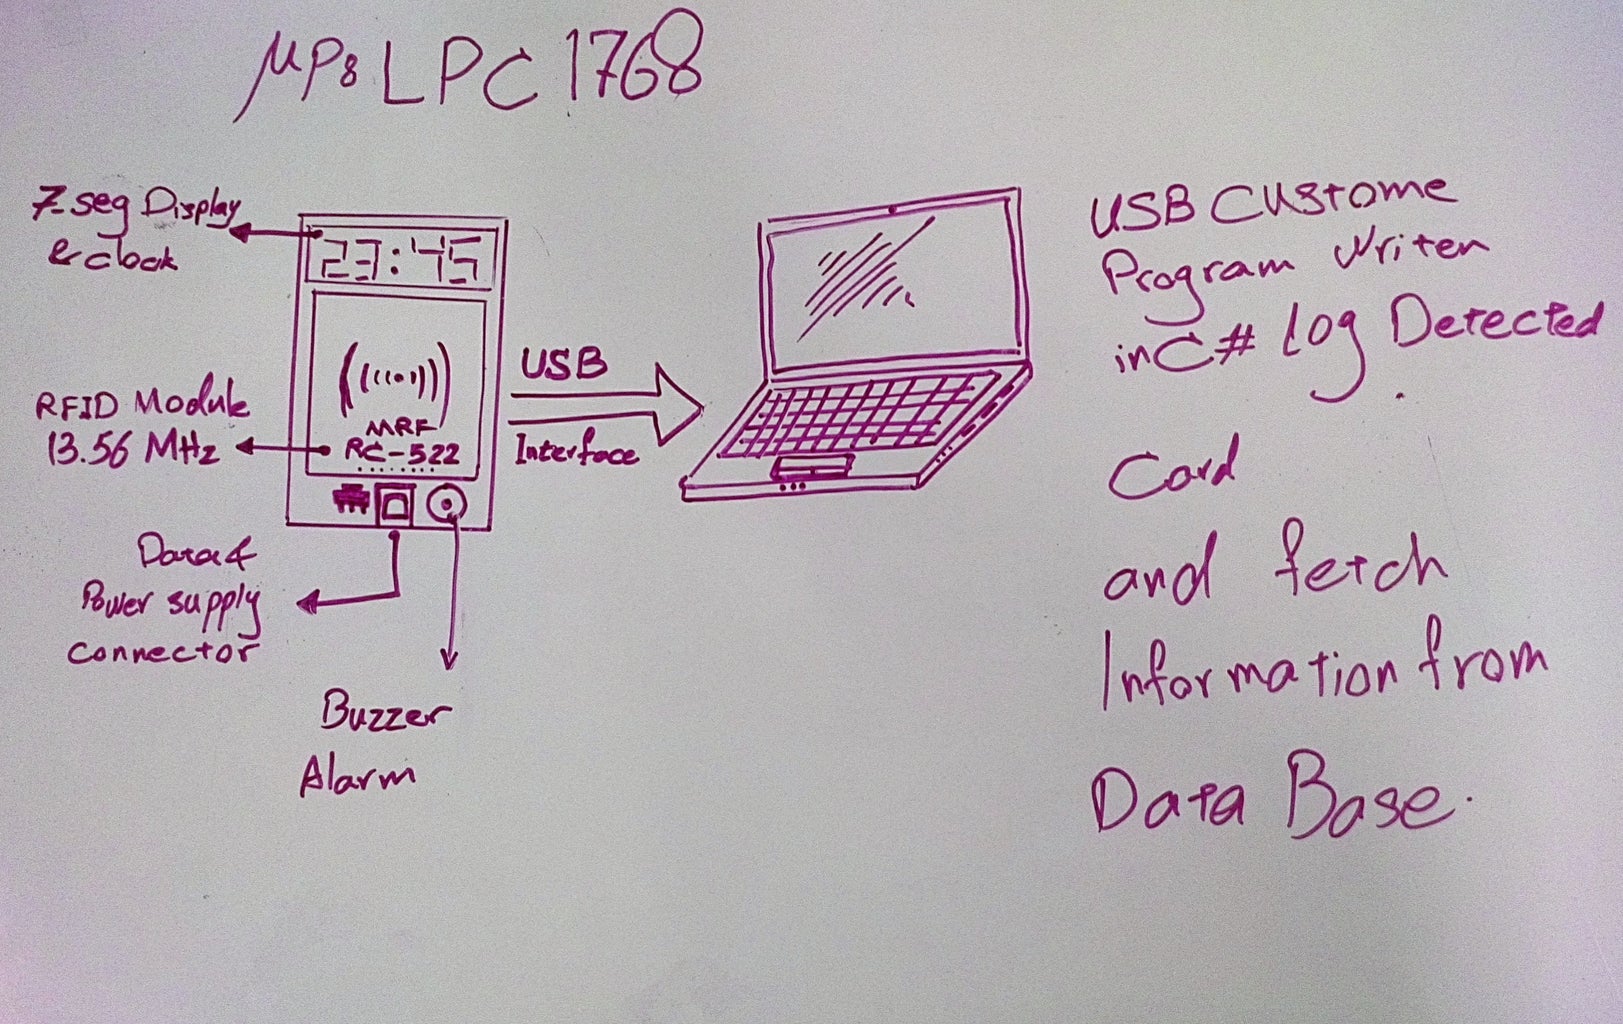 μP: LPC1768
7-seg Display
& clock
23:45
RFID Module
13.56 MHz
MRF
RC-522
USB
Interface
Data &
Power supply
connector
Buzzer
Alarm
USB Custome
Program Writen
in C# log Detected
Card
and fetch
Information from
Data Base.